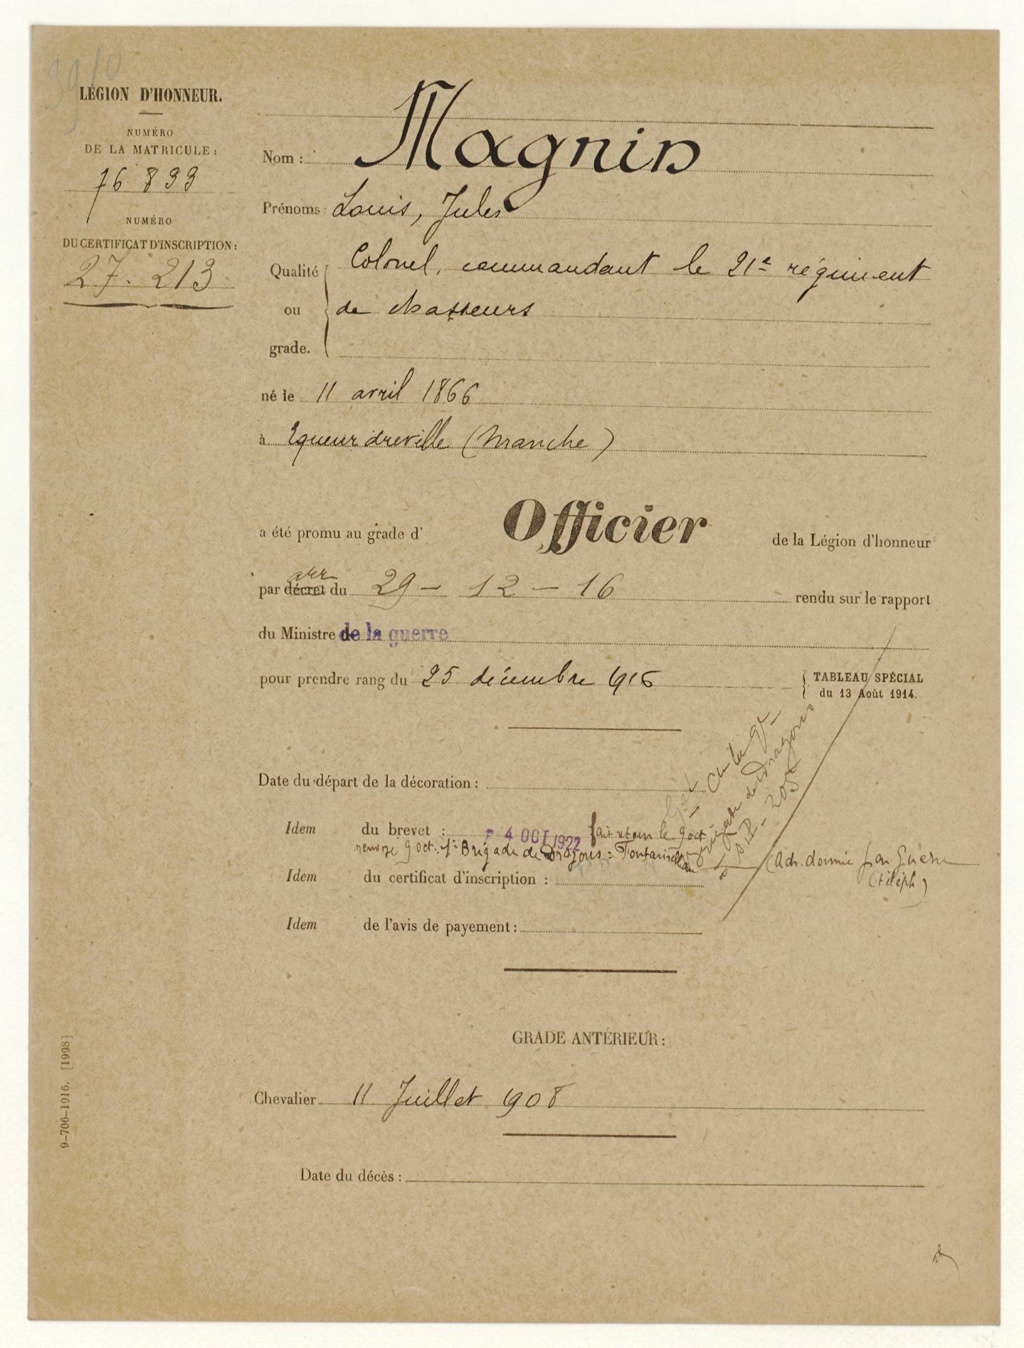 3910
LÉGION D'HONNEUR.
NUMÉRO
DE LA MATRICULE :
76 899
NUMÉRO
DU CERTIFICAT D'INSCRIPTION :
27. 213
Nom : Magnin
Prénoms Louis, Jules
Qualité ou grade. Colonel, commandant le 21e régiment
de chasseurs
né le 11 avril 1866
à Equeurdreville (Manche)
a été promu au grade d' Officier de la Légion d'honneur
arr
par décret du 29 - 12 - 16 rendu sur le rapport
du Ministre de la guerre
pour prendre rang du 25 décembre 1916
TABLEAU SPÉCIAL
du 13 Août 1914.
Date du départ de la décoration :
Idem du brevet : 4 OCT 1922 fait le 9 oct
9 oct. 1e Brigade de Dragons : Fontainebleau
brigade de Dragons
(Adr. donnée par Guerre
(téleph)
Idem du certificat d'inscription :
Idem de l'avis de payement :
GRADE ANTÉRIEUR :
Chevalier 11 Juillet 1908
Date du décès :
9-706-1916. [1998]